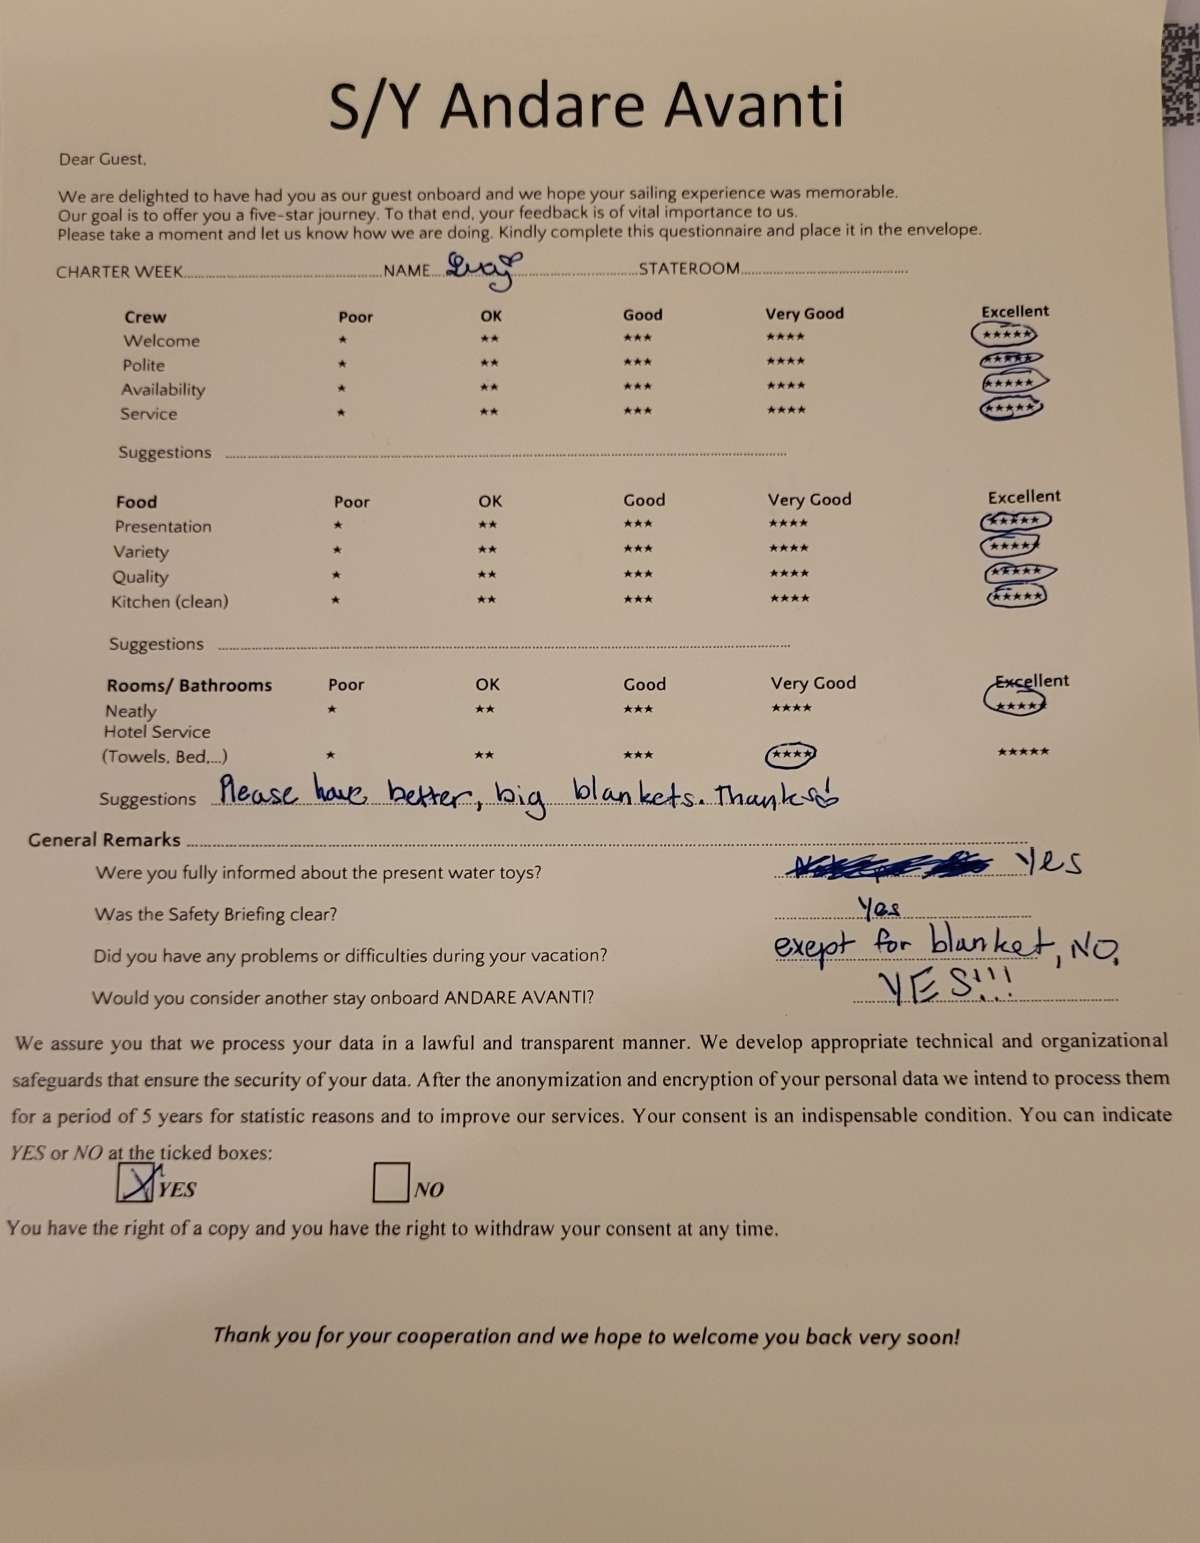 S/Y Andare Avanti
Dear Guest,
We are delighted to have had you as our guest onboard and we hope your sailing experience was memorable.
Our goal is to offer you a five-star journey. To that end, your feedback is of vital importance to us.
Please take a moment and let us know how we are doing. Kindly complete this questionnaire and place it in the envelope.
CHARTER WEEK NAME STATEROOM
Crew Poor OK Good Very Good Excellent
Welcome ★ ★★ ★★★ ★★★★ ★★★★★
Polite ★ ★★ ★★★ ★★★★ ★★★★★
Availability ★ ★★ ★★★ ★★★★ ★★★★★
Service ★ ★★ ★★★ ★★★★ ★★★★★
Suggestions
Food Poor OK Good Very Good Excellent
Presentation ★ ★★ ★★★ ★★★★ ★★★★★
Variety ★ ★★ ★★★ ★★★★ ★★★★★
Quality ★ ★★ ★★★ ★★★★ ★★★★★
Kitchen (clean) ★ ★★ ★★★ ★★★★ ★★★★★
Suggestions
Rooms/ Bathrooms Poor OK Good Very Good Excellent
Neatly ★ ★★ ★★★ ★★★★ ★★★★★
Hotel Service
(Towels, Bed,...) ★ ★★ ★★★ ★★★★ ★★★★★
Suggestions Please have better, big blankets. Thanks
General Remarks
Were you fully informed about the present water toys? Yes
Was the Safety Briefing clear? Yes
Did you have any problems or difficulties during your vacation? exept for blanket, NO.
Would you consider another stay onboard ANDARE AVANTI? YES!!!
We assure you that we process your data in a lawful and transparent manner. We develop appropriate technical and organizational
safeguards that ensure the security of your data. After the anonymization and encryption of your personal data we intend to process them
for a period of 5 years for statistic reasons and to improve our services. Your consent is an indispensable condition. You can indicate
YES or NO at the ticked boxes:
YES NO
You have the right of a copy and you have the right to withdraw your consent at any time.
Thank you for your cooperation and we hope to welcome you back very soon!